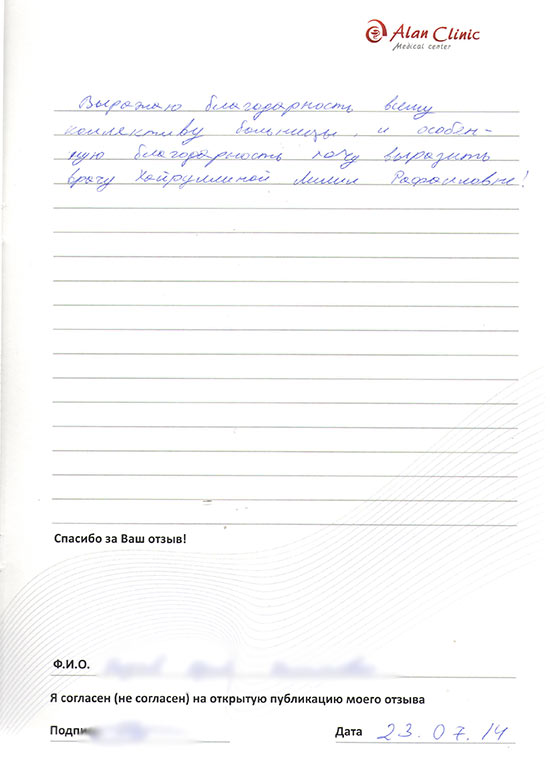 Alan Clinic
Medical center
Выражаю благодарность всему
коллективу больницы, и особен-
ную благодарность хочу выразить
врачу Хайруллиной Лилии Рафаиловне!
Спасибо за Ваш отзыв!
Ф.И.О.
Я согласен (не согласен) на открытую публикацию моего отзыва
Дата 23.07.14